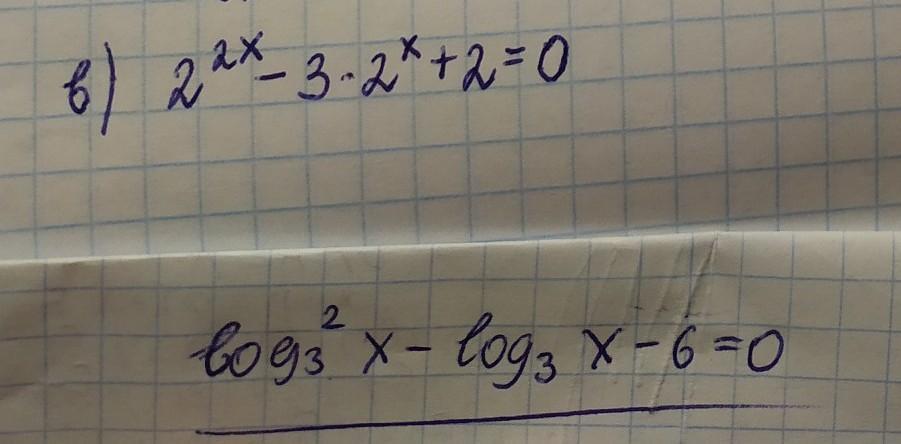 в) 2^{2x} - 3·2^x + 2 = 0
log₃² x - log₃ x - 6 = 0